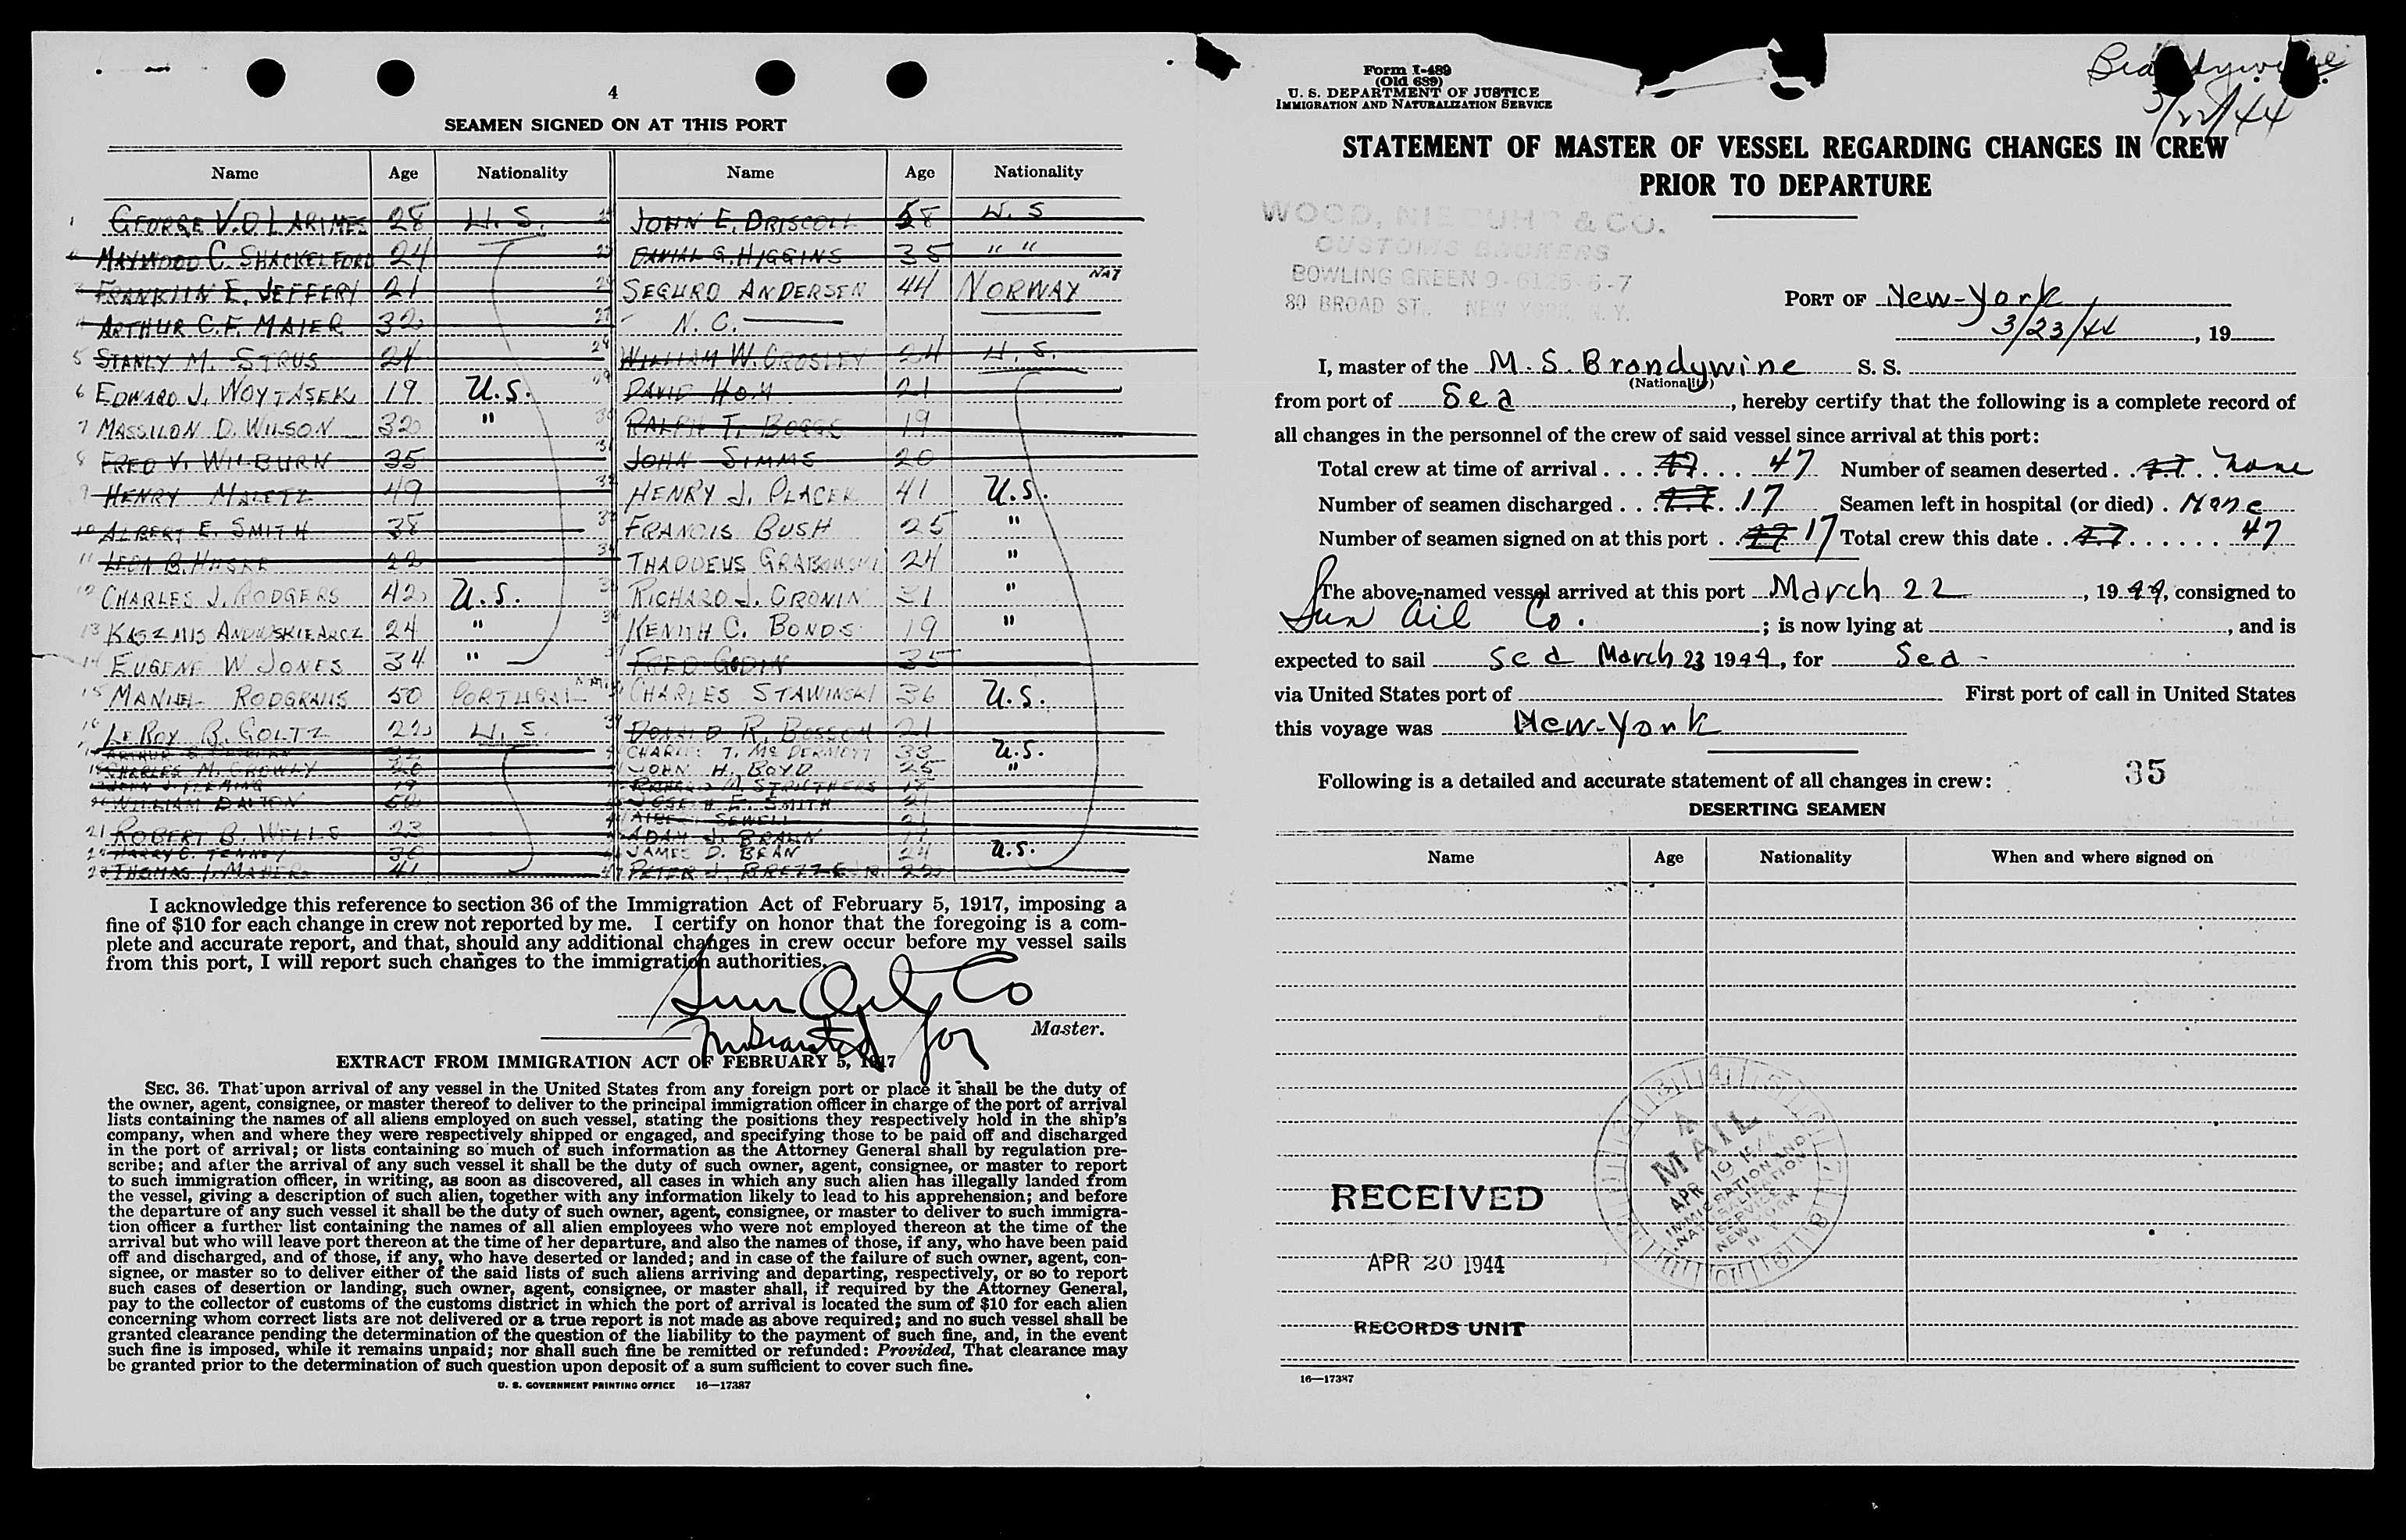 4
SEAMEN SIGNED ON AT THIS PORT
Name Age Nationality Name Age Nationality
1 GEORGE V.D LARIMES 28 U.S. JOHN E. DRISCOLL 58 U.S
MAYWOOD C. SHACKELFORD 24 DANIAL G. HIGGINS 35 " "
FRANKLIN E. JEFFERY 21 SEGURD ANDERSEN 44 NORWAY NAT
ARTHUR C.F. MAIER 32 27 N. C.
5 STANLY M. STRUS 24 WILLIAM W. CROSLEY 24 U.S.
6 EDWARD J. WOYTASEK 19 U.S. DAVID HOM 21
7 MASSILON D. WILSON 32 " RALPH T. BOGGS 19
8 FRED V. WILBURN 35 31 JOHN SIMMS 20
9 HENRY MALETZ 49 HENRY J. PLACEK 41 U.S.
10 ALBERT E. SMITH 38 FRANCIS BUSH 25 "
11 LEON B. HUSKE 22 THADDEUS GRABOWSKI 24 "
12 CHARLES J. RODGERS 42 U.S. RICHARD J. CRONIN 31 "
13 24 " KENITH C. BONDS 19 "
14 EUGENE W JONES 34 " FRED GODIN 35
15 MANUEL 50 PORTUGAL CHARLES STAWINSKI 36 U.S.
16 LEROY B. GOLTZ 22 U.S. DONALD R. BESSOM 21
CHARLES T. McDERMOTT 33 U.S.
18 CHARLES M. CROWLY 20 JOHN H. BOYD 25 "
JOHN J. FLEMING 19 RICHARD M. STRUTHERS
20 WILLIAM DALTON 50 JOSEPH E. SMITH 21
ALBERT SEWELL 21
21 ROBERT B. WELLS 23 ADAM J. BRAUN
HARRY C. TENNEY 30 JAMES D. BEAN 24 U.S.
23 THOMAS I. MAHER 41 PETER J. 22
I acknowledge this reference to section 36 of the Immigration Act of February 5, 1917, imposing a
fine of $10 for each change in crew not reported by me. I certify on honor that the foregoing is a com-
plete and accurate report, and that, should any additional changes in crew occur before my vessel sails
from this port, I will report such changes to the immigration authorities.
Sun Oil Co
for Master.
EXTRACT FROM IMMIGRATION ACT OF FEBRUARY 5, 1917
SEC. 36. That upon arrival of any vessel in the United States from any foreign port or place it shall be the duty of
the owner, agent, consignee, or master thereof to deliver to the principal immigration officer in charge of the port of arrival
lists containing the names of all aliens employed on such vessel, stating the positions they respectively hold in the ship's
company, when and where they were respectively shipped or engaged, and specifying those to be paid off and discharged
in the port of arrival; or lists containing so much of such information as the Attorney General shall by regulation pre-
scribe; and after the arrival of any such vessel it shall be the duty of such owner, agent, consignee, or master to report
to such immigration officer, in writing, as soon as discovered, all cases in which any such alien has illegally landed from
the vessel, giving a description of such alien, together with any information likely to lead to his apprehension; and before
the departure of any such vessel it shall be the duty of such owner, agent, consignee, or master to deliver to such immigra-
tion officer a further list containing the names of all alien employees who were not employed thereon at the time of the
arrival but who will leave port thereon at the time of her departure, and also the names of those, if any, who have been paid
off and discharged, and of those, if any, who have deserted or landed; and in case of the failure of such owner, agent, con-
signee, or master so to deliver either of the said lists of such aliens arriving and departing, respectively, or so to report
such cases of desertion or landing, such owner, agent, consignee, or master shall, if required by the Attorney General,
pay to the collector of customs of the customs district in which the port of arrival is located the sum of $10 for each alien
concerning whom correct lists are not delivered or a true report is not made as above required; and no such vessel shall be
granted clearance pending the determination of the question of the liability to the payment of such fine, and, in the event
such fine is imposed, while it remains unpaid; nor shall such fine be remitted or refunded: Provided, That clearance may
be granted prior to the determination of such question upon deposit of a sum sufficient to cover such fine.
U. S. GOVERNMENT PRINTING OFFICE 16—17387
Form I-489
(Old 689)
U. S. DEPARTMENT OF JUSTICE
IMMIGRATION AND NATURALIZATION SERVICE
Brandywine
3/22/44
STATEMENT OF MASTER OF VESSEL REGARDING CHANGES IN CREW
PRIOR TO DEPARTURE
WOOD, NIEBUHR & CO.
CUSTOMS BROKERS
BOWLING GREEN 9-6125-6-7
80 BROAD ST. NEW YORK, N.Y.
PORT OF New-York
3/23/44, 19
I, master of the M.S. Brandywine S. S.
(Nationality)
from port of Sea, hereby certify that the following is a complete record of
all changes in the personnel of the crew of said vessel since arrival at this port:
Total crew at time of arrival . . . . 47 Number of seamen deserted . . none
Number of seamen discharged . . . 17 Seamen left in hospital (or died) . None
Number of seamen signed on at this port . . 17 Total crew this date . . 47
The above-named vessel arrived at this port March 22, 1944, consigned to
Sun Oil Co. ; is now lying at , and is
expected to sail Sea March 23 1944, for Sea -
via United States port of First port of call in United States
this voyage was New-York
Following is a detailed and accurate statement of all changes in crew: 35
DESERTING SEAMEN
Name Age Nationality When and where signed on
MAIL
APR 19
IMMIGRATION AND
NATURALIZATION
SERVICE
NEW YORK
N. Y.
RECEIVED
APR 20 1944
RECORDS UNIT
16—17387